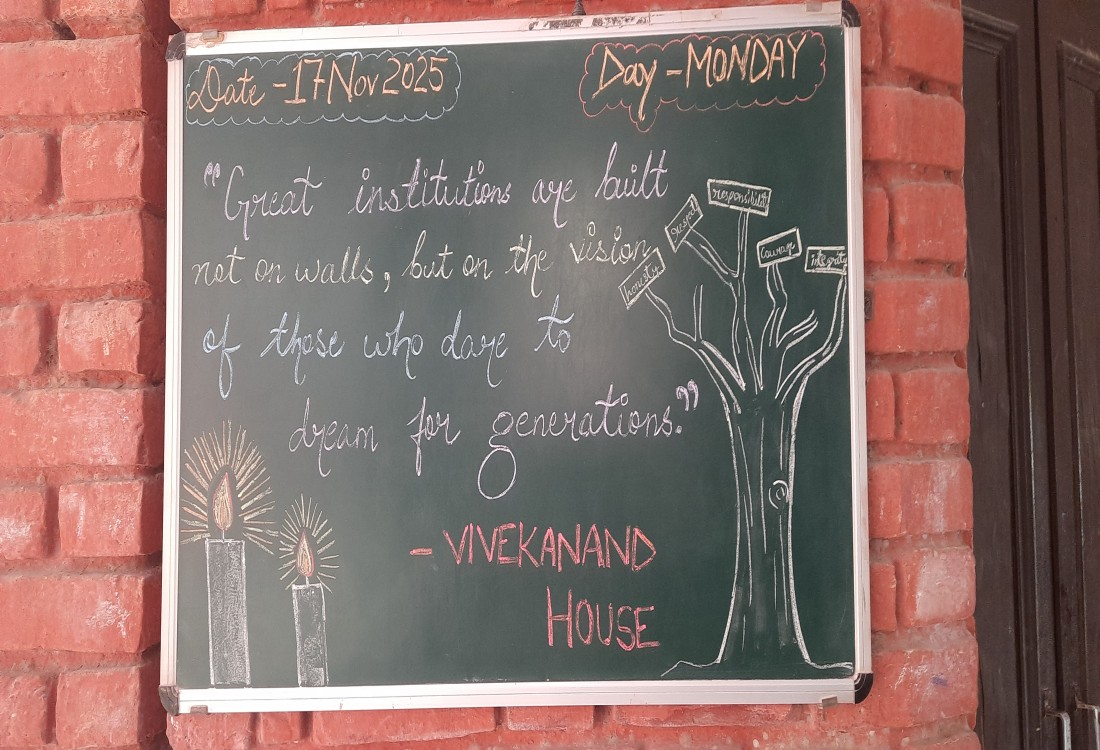 Date - 17 Nov 2025
Day - MONDAY
"Great institutions are built
not on walls, but on the vision
of those who dare to
dream for generations."
- VIVEKANAND
HOUSE
responsibility
respect
honesty
Courage
integrity